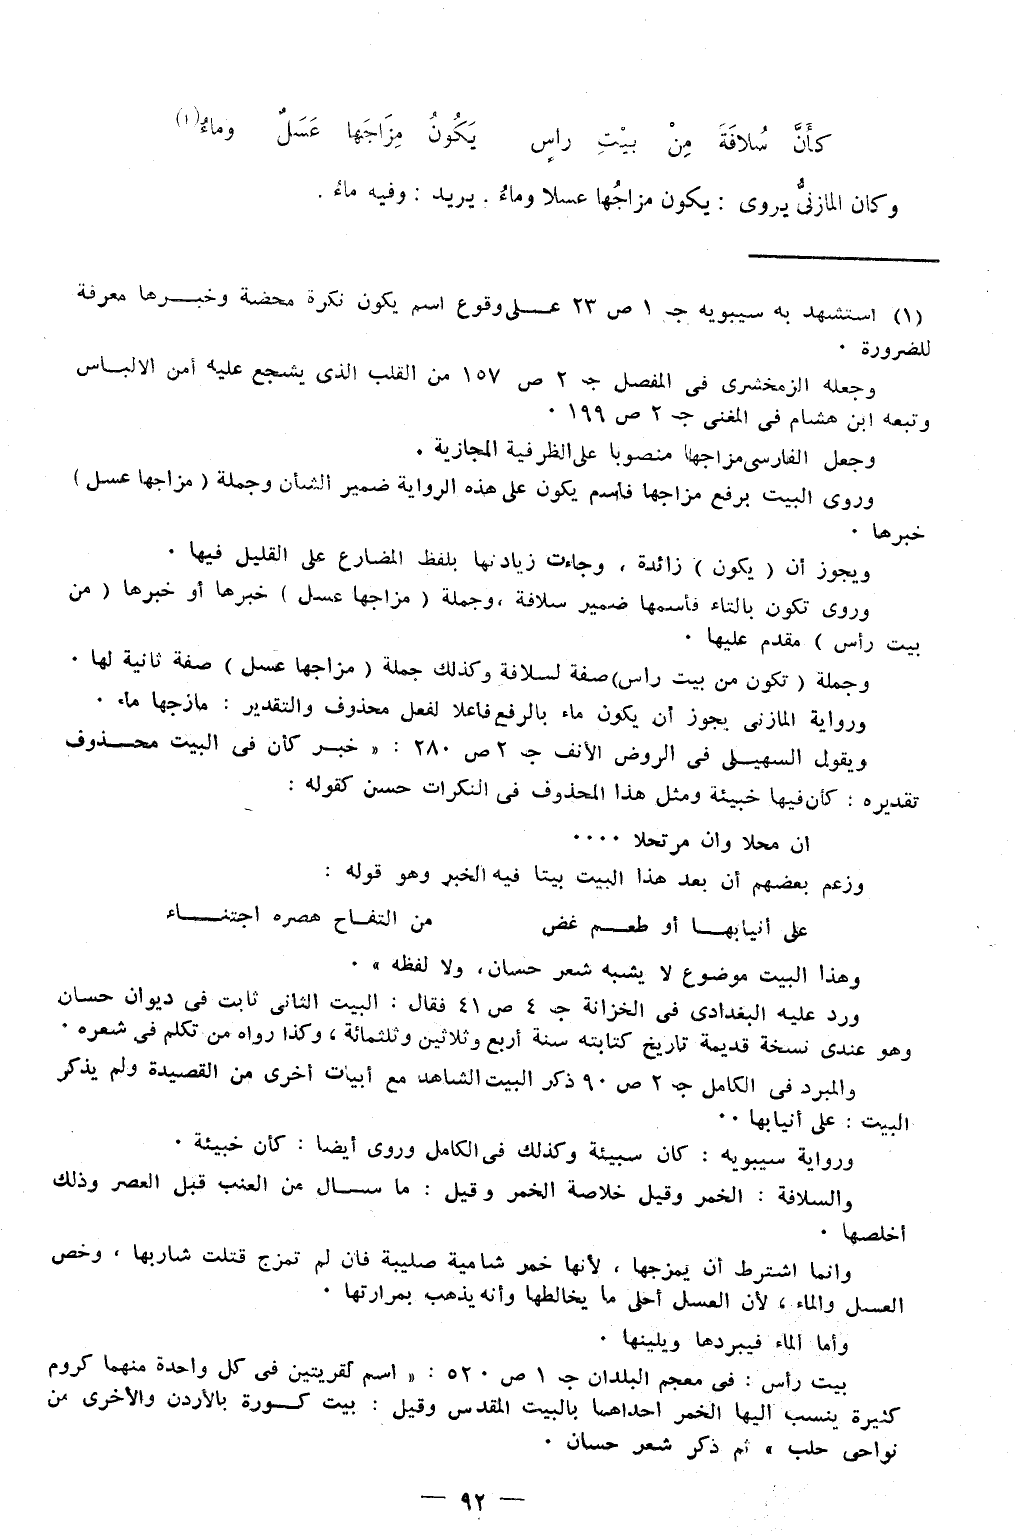 كأَنَّ سُلافَةَ مِنْ بيْتِ راسٍ يَكُونُ مِزَاجَها عَسَلٌ وماءُ(١)
وكان المازنىُّ يروى : يكون مزاجُها عسلا وماءُ . يريد : وفيه ماءُ .
(١) استشهد به سيبويه جـ ١ ص ٢٣ عـلى وقوع اسم يكون نكرة محضة وخبـرها معرفة
للضرورة ٠
وجعله الزمخشرى فى المفصل جـ ٢ ص ١٥٧ من القلب الذى يشجع عليه أمن الالبـاس
وتبعه ابن هشام فى المغنى جـ ٢ ص ١٩٩ ٠
وجعل الفارسى مزاجها منصوبا على الظرفية المجازية ٠
وروى البيت برفع مزاجها فاسم يكون على هذه الرواية ضمير الشأن وجملة ( مزاجها عسل )
خبرها ٠
ويجوز أن ( يكون ) زائدة ، وجاءت زيادتها بلفظ المضارع على القليل فيها ٠
وروى تكون بالتاء فأسمها ضمير سلافة ، وجملة ( مزاجها عسل ) خبرها أو خبرها ( من
بيت رأس ) مقدم عليها ٠
وجملة ( تكون من بيت راس) صفة لسلافة وكذلك جملة ( مزاجها عسل ) صفة ثانية لها ٠
ورواية المازنى يجوز أن يكون ماء بالرفع فاعلا لفعل محذوف والتقدير : مازجها ماء ٠
ويقول السهيـلى فى الروض الأنف جـ ٢ ص ٢٨٠ : « خبـر كأن فى البيت محـذوف
تقديره : كأن فيها خبيئة ومثل هذا المحذوف فى النكرات حسن كقوله :
ان محلا وان مرتحلا ٠٠٠٠
وزعم بعضهم أن بعد هذا البيت بيتا فيه الخبر وهو قوله :
على أنيابهـا أو طعـم غض من التفـاح هصره اجتنـاء
وهذا البيت موضوع لا يشبه شعر حسان، ولا لفظه » ٠
ورد عليه البغدادى فى الخزانة جـ ٤ ص ٤١ فقال : البيت الثانى ثابت فى ديوان حسان
وهو عندى نسخة قديمة تاريخ كتابته سنة أربع وثلاثين وثلثمائة ، وكذا رواه من تكلم فى شعره ٠
والمبرد فى الكامل جـ ٢ ص ٩٠ ذكر البيت الشاهد مع أبيات أخرى من القصيدة ولم يذكر
البيت : على أنيابها ٠٠
ورواية سيبويه : كان سبيئة وكذلك فى الكامل وروى أيضا : كأن خبيئة ٠
والسلافة : الخمر وقيل خلاصة الخمر وقيل : ما سـال من العنب قبل العصر وذلك
أخلصها ٠
وانما اشترط أن يمزجها ، لأنها خمر شامية صليبة فان لم تمزج قتلت شاربها ، وخص
العسل والماء ، لأن العسل أحلى ما يخالطها وأنه يذهب بمرارتها ٠
وأما الماء فيبردها ويلينها ٠
بيت رأس : فى معجم البلدان جـ ١ ص ٥٢٠ : « اسم لقريتين فى كل واحدة منهما كروم
كثيرة ينسب اليها الخمر احداهما بالبيت المقدس وقيل : بيت كـورة بالأردن والأخرى من
نواحى حلب » ثم ذكر شعر حسان ٠
— ٩٢ —